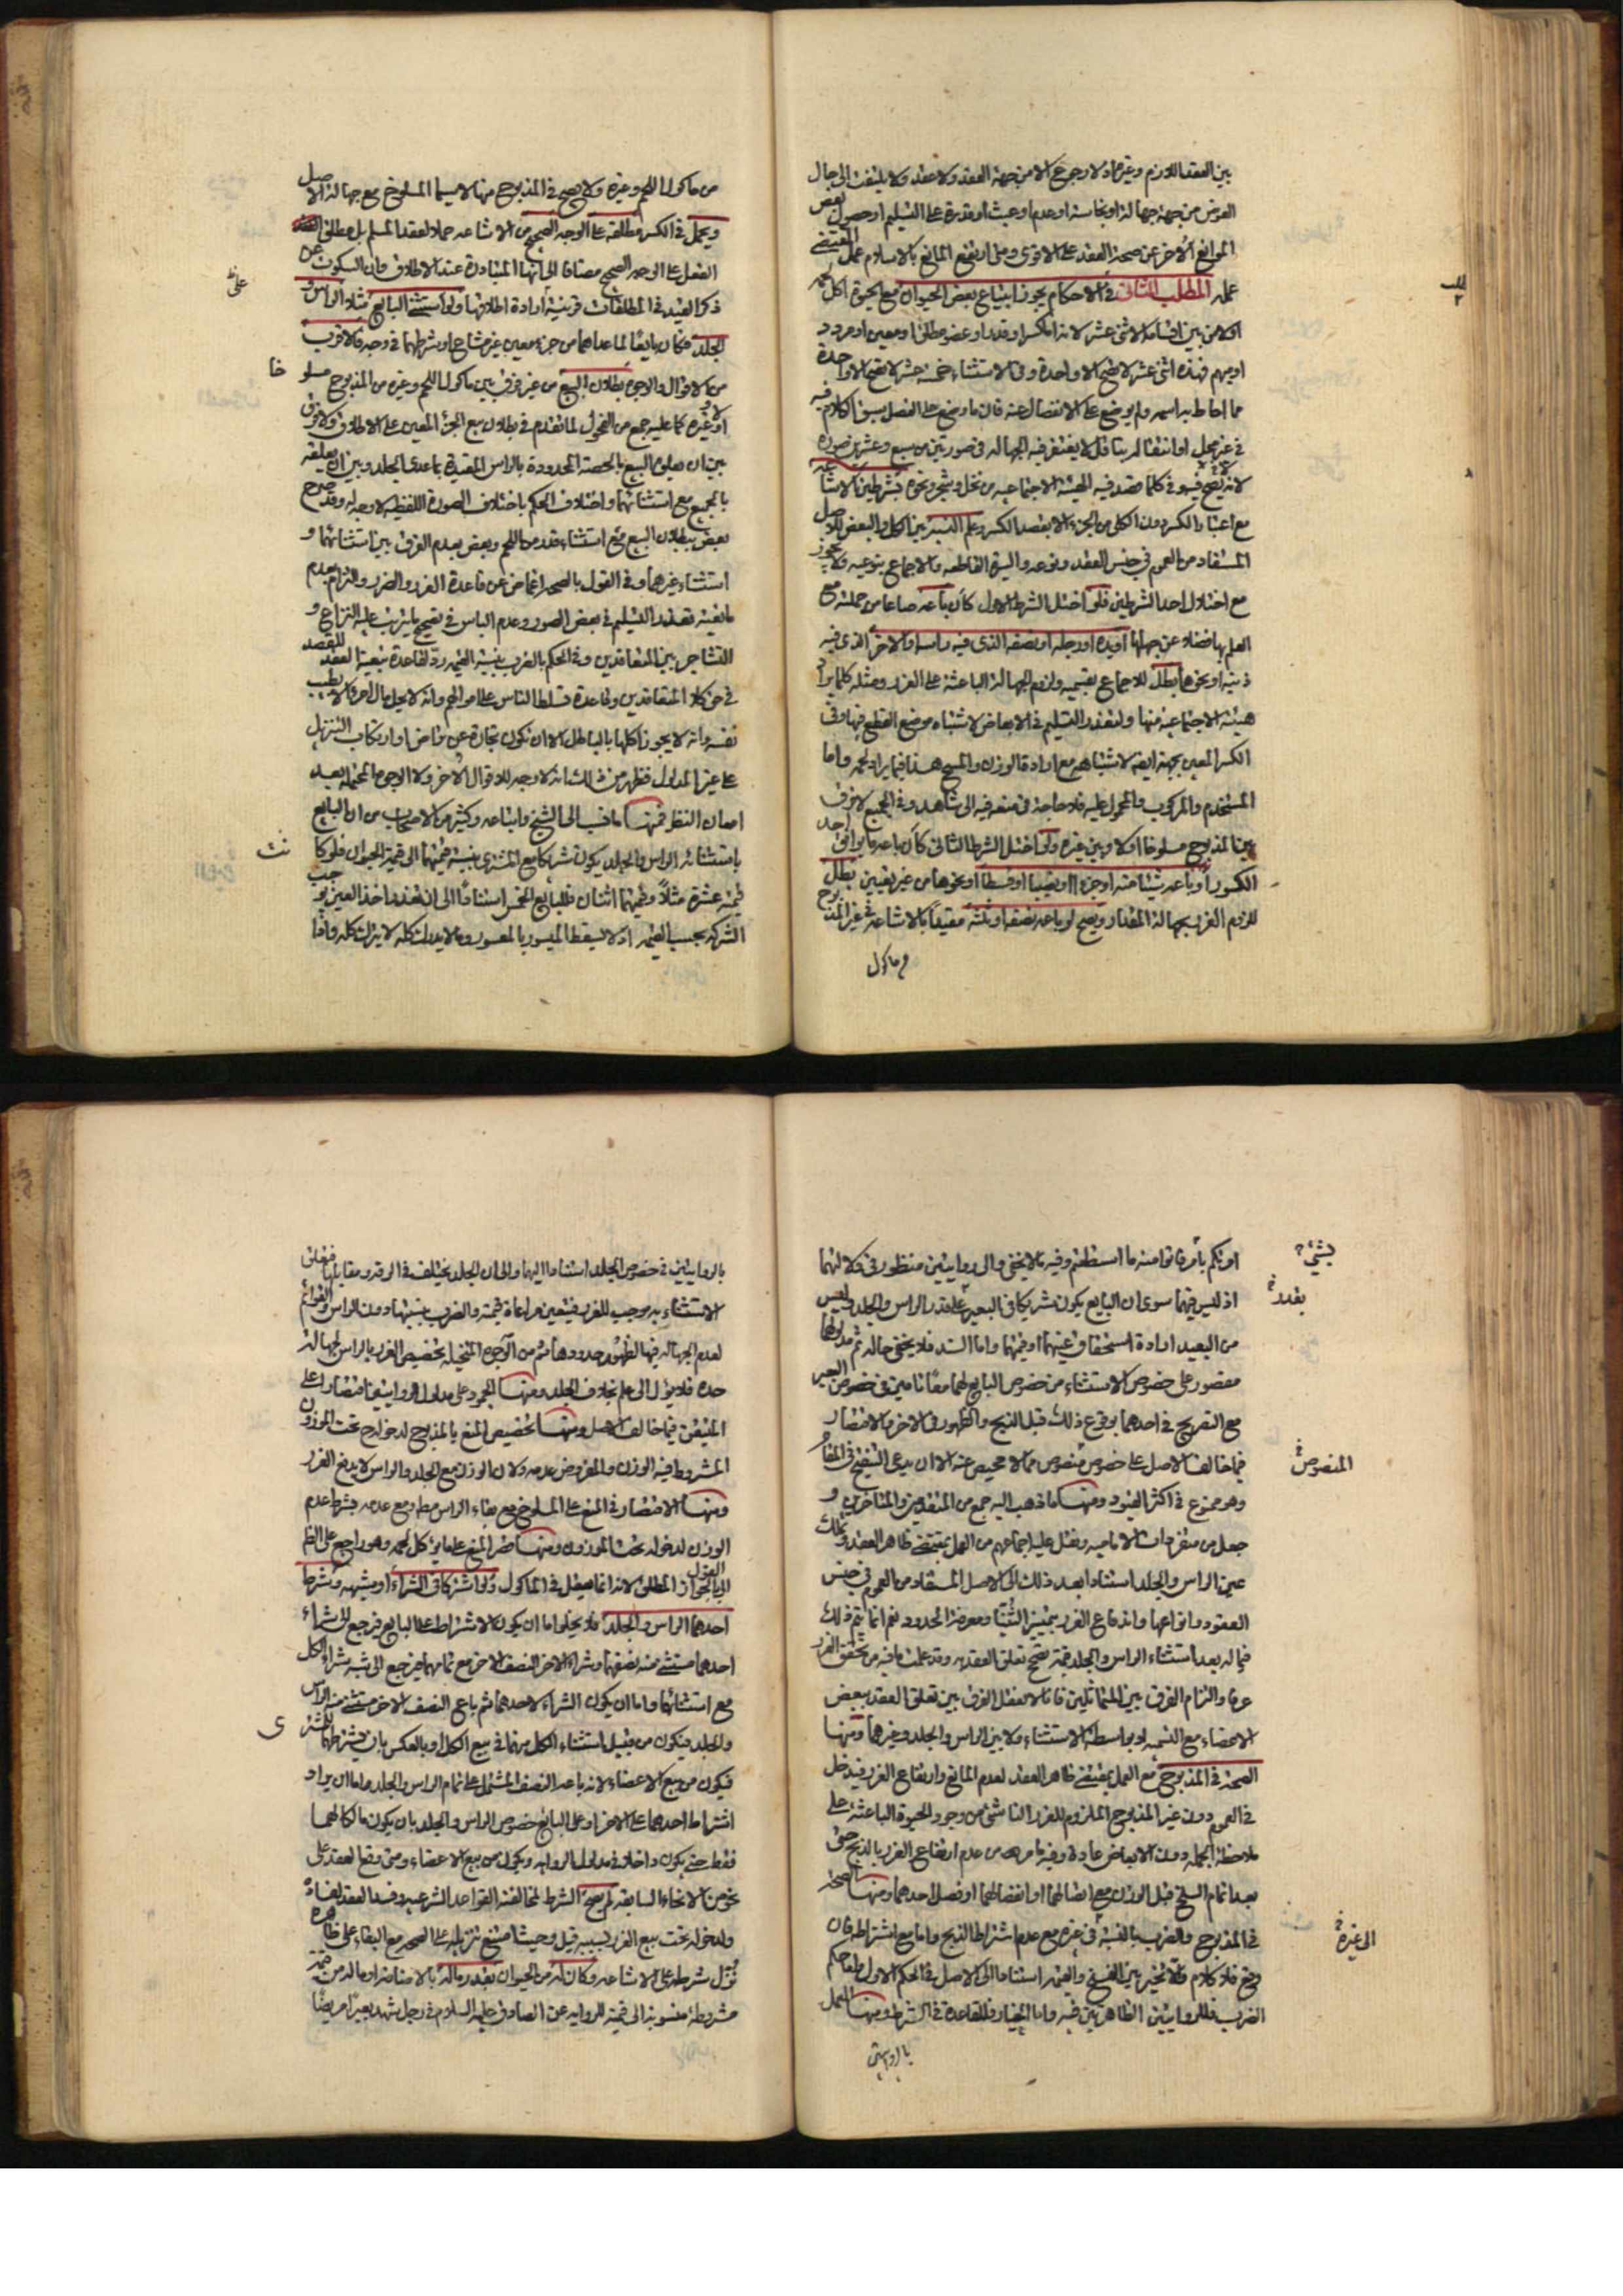 بين العقد اللازم وغيره اذ لا رجوع الا من جهة العقد ولا عقد ولا يلتفت الى حال
العوض من جهة جهالة او نجاسة او عدم او عبث او قدرة على التسليم او حصول بعض
الموانع الأخر عن صحة العقد على الاقوى ومتى ارتفع المانع بالاسلام عمل المقتضى
عمله المطلب الثانى فى الاحكام يجوز ابتياع بعض الحيوان مع الحيوة اكل لحمه
اولا من بين اقسامه الاثنى عشر لانه اما كسر او قدر او عضو مطلق او معين او مردد
او مبهم فهذه اثنى عشر لا تصح الا واحدة وفى الاستثناء خمسة عشر لا تصح الا واحدة
مما احاط به اسمه ولم يوضع على الانفصال عنه فان ما وضع على الفصل يسبق الكلام فيه
فى غير محل او انتقالهم يتأقل لا يغتفر فيه الجهالة فى صورتين من سبع وعشرين صورة
لانه يصح فيه وفى كلما قصد فيه الهيئة الاجتماعية من نخل وشجر ونحوه بشرطين الاشاعة
مع اعتبار الكسر دون الكلى من الجزء الا بقصد الكسر وعلم النسبة بين الكل والبعض للاصل
المستفاد من العموم فى جنس العقد ونوعه والسيرة القاطعة والاجماع بنوعيه ولا يجوز
مع اختلال احد الشرطين فلو اختل الشرط الاول كأن باعه صاعا من جملة مع
العلم بها فضلا عن جهالها او يده او رجله او نصفه الذى فيه راسه والاخر الذى فيه
ذنبه او نحوها بطل للاجماع بقسميه ولزوم الجهالة الباعثة على الغرر ومثله كلما يراد
هيئته الاجتماعية منها ولتعذر التسليم فى الابعاض لاشتباه موضع القطع فيها وفى
الكسر المعين بجهة ايضا لاشتباهه مع ارادة الوزن والمسح هذا فيما يراد لحمه واما
المستخدم والمركوب والمحمول عليه فلا حاجة فى منعه فيه الى شاهد وفى الجميع لا فرق
بين المذبوح مسلوخا اولا وبين غيره ولو اختل الشرط الثانى كأن باعه ما يوافق احد
الكسور او باعه شيئا منه او جزءا او نصيبا او قسطا او نحوها من غير تعيين بطل
للزوم الغرر بجهالة المقدار ويصح لو باعه نصفه او ثلثه مقيدا بالاشاعة فى غير المذبوح
من ماكول
من ماكول اللحم وغيره ولا يصح فى المذبوح منها لا سيما المسلوخ مع جهالة الاصل
ويحمل فى الكسر مطلقه على الوجه الصحيح من الاشاعة حملا لعقد المسلم بل مطلق
الفعل على الوجه الصحيح مضافا الى انها المتبادرة عند الاطلاق وان السكوت عن
ذكر القيد فى المطلقات قرينة ارادة اطلاقها ولو استثنى البايع مثلا الراس و
الجلد فكان بايعا لما عداهما من جزء معين غير مشاع او شرطهما فى وجه فالاقرب
من الاقوال والوجوه بطلان البيع من غير فرق بين ماكول اللحم وغيره من المذبوح مسلوخا
او غيره كما عليه جمع من الفحول لما تقدم فى بطلان بيع الجزء المعين على الاطلاق ولا فرق
بين ان يعلق البيع بالحصة المحدودة بالراس المقيدة بما عدى الجلد وبين ان يعلقه
بالجميع مع استثنائهما واختلاف الحكم باختلاف الصورة اللفظية لا وجه له وقد صرح
بعض ببطلان البيع مع استثناء قدر من اللحم وبعض بعدم الفرق بين استثنائهما و
استثناء غيرهما وفى القول بالصحة اغماض عن قاعدة الغرر والضرر والتزام بعدم
مانعية تعذر التسليم فى بعض الصور وعدم الباس فى تصحيح ما يترتب عليه النزاع و
التشاجر بين المتعاقدين وفى الحكم بالضرب بنسبة القيمة رد لقاعدة تبعية العقد للقصد
فى حق كلا المتعاقدين وقاعدة تسلط الناس على اموالهم وانه لا يحل مال امرء الا بطيب
نفسه وانه لا يجوز اكلها بالباطل الا ان تكون تجارة عن تراض او ارتكاب التنزيل
على غير المدلول فظهر من ذلك انه لا وجه للاقوال الأخر ولا الوجوه المحتملة بعد
امعان النظر فمنها ما نسب الى الشيخ واتباعه وكثير من الاصحاب من ان البايع
باستثنائه الراس والجلد يكون شريكا مع المشترى بنسبة قيمتهما الى قيمة الحيوان فلو كانت
قيمته عشرة مثلا وقيمتهما اثنان فللبايع الخمس استنادا الى ان تعذر اخذ العين يوجب
الشركة بحسب القيمة اذ لا يسقط الميسور بالمعسور وما لا يدرك كله لا يترك كله واذا
امرتكم بشئ فاتوا منه ما استطعتم وفيه ما لا يخفى والى روايتين منظور فى دلالتهما
اذ ليس فيهما سوى ان البايع يكون شريكا فى البعير على قدر الراس والجلد وليس
من البعيد ارادة استحقاق عينهما او قيمتهما واما السند فلا يخفى حاله ثم مدلولهما
مقصور على خصوص الاستثناء من خصوص البايع لهما معا ناصين فى خصوص البعير
مع التصريح فى احدهما بوقوع ذلك قبل الذبح والظهور فى الاخر والاقتصار
فيما خالف الاصل على خصوص المنصوص مما لا محيص عنه الا ان يدعى التنقيح فى المقام
وهو ممنوع فى اكثر القيود ومنها ما ذهب اليه جمع من المتقدمين والمتاخرين و
جعل من متفردات الامامية ونقل عليه اجماعهم من العمل بمقتضى ظاهر العقد وتملك
عين الراس والجلد استنادا بعد ذلك الى الاصل المستفاد من العموم فى جنس
العقود وانواعها واندفاع الغرر بتمييز الثنيا ومعرفة الحدود نعم انما يتم ذلك
فيما له بعد استثناء الراس والجلد قيمة تصح تعلق العقد به وقد علمت ما فيه من تحقق الغرر
عرفا والتزام الفرق بين المتماثلين فانا لا نعقل الفرق بين تعلق العقد ببعض
الاعضاء مع التسمية او بواسطة الاستثناء ولا بين الراس والجلد وغيرهما ومنها
الصحة فى المذبوح مع العمل بمقتضى ظاهر العقد لعدم المانع وارتفاع الغرر فيدخل
فى العموم دون غير المذبوح الملزوم للغرر الناشى من وجود الحيوة الباعثة على
ملاحظة الجملة دون الابعاض عادة وفيه ما مر من عدم ارتفاع الغرر بالذبح حتى
بعد اتمام السلخ قبل الوزن مع اتصالهما او انفصالهما او فصل احدهما ومنها الصحة
فى المذبوح والضرب بالنسبة فى غيره مع عدم اشتراط الذبح واما مع اشتراطه فان
وقع فلا كلام والا تخير بين الفسخ والقيمة استنادا الى الاصل فى الحكم الاول واما حكم
الضرب فللروايتين الظاهرتين فيه واما الخيار فللقاعدة فى الشرط ومنها العمل
بالروايتين
بالروايتين فى خصوص الجلد استنادا اليهما والى ان الجلد يختلف فى الرقة ومقابلها فتعلق
الاستثناء به يوجب للغرر فيتعين مراعاة قيمته والضرب بنسبتها دون الراس والقوائم
لعدم الجهالة فيها لظهور حدودها ثم من الوجوه المتخيلة تخصيص الغرر بالراس لجهالة
حده فلا يؤل الى علم بخلاف الجلد ومنها الجمود على مدلول الروايتين اقتصارا على
المتيقن فيما خالف الاصل ومنها تخصيص المنع بالمذبوح لدخوله تحت الموزون
المشروط فيه الوزن والمفروض عدمه ولان الوزن مع الجلد والراس لا يدفع الغرر
ومنها الاقتصار فى المنع على المسلوخ مع بقاء الراس مط ومع عدمه بشرط عدم
الوزن لدخوله تحت الموزون ومنها قصر المنع على ما يؤكل لحمه وهو راجع على الظ
الى القول بالجواز المطلق لانه انما يعقل فى الماكول ولو اشتركا فى الشراء او شبهه وشرط
احدهما الراس والجلد فلا يخلو اما ان يكون الاشتراط على البايع فيرجع الى شراء
احدهما مستثنى منه نصفهما وشراء الاخر النصف الاخر مع تمامهما فيرجع الى شبه شراء الكل
مع استثنائهما واما ان يكون الشراء لاحدهما ثم باع النصف الاخر مستثنى منه الراس
والجلد فيكون من قبيل استثناء الكل منهما فى بيع الكل او بالعكس بان يشترطهما للمشترى
فيكون من بيع الاعضاء لانه باعه النصف المشتمل على تمام الراس والجلد واما ان يراد
اشتراط احدهما على الاخر او على البايع خصوص الراس والجلد بان يكون مالكا لهما
فقط حتى يكون داخلا فى مدلول الرواية ويكون من بيع الاعضاء ومتى وقع العقد على
نحو من الانحاء السابقة لم يصح الشرط لمخالفته القواعد الشرعية وفسد العقد لفساده
ولدخوله تحت بيع الغرر بسببه قيل وحيث امتنع تنزيله على الصحة مع البقاء على ظاهره
نزل شرطه على الاشاعة وكان له من الحيوان بقدر ماله بالاضافة او ماله من قيمة
مشروطة منسوبة الى قيمته للرواية عن الصادق عليه السلام فى رجل شهد بعيرا مريضا